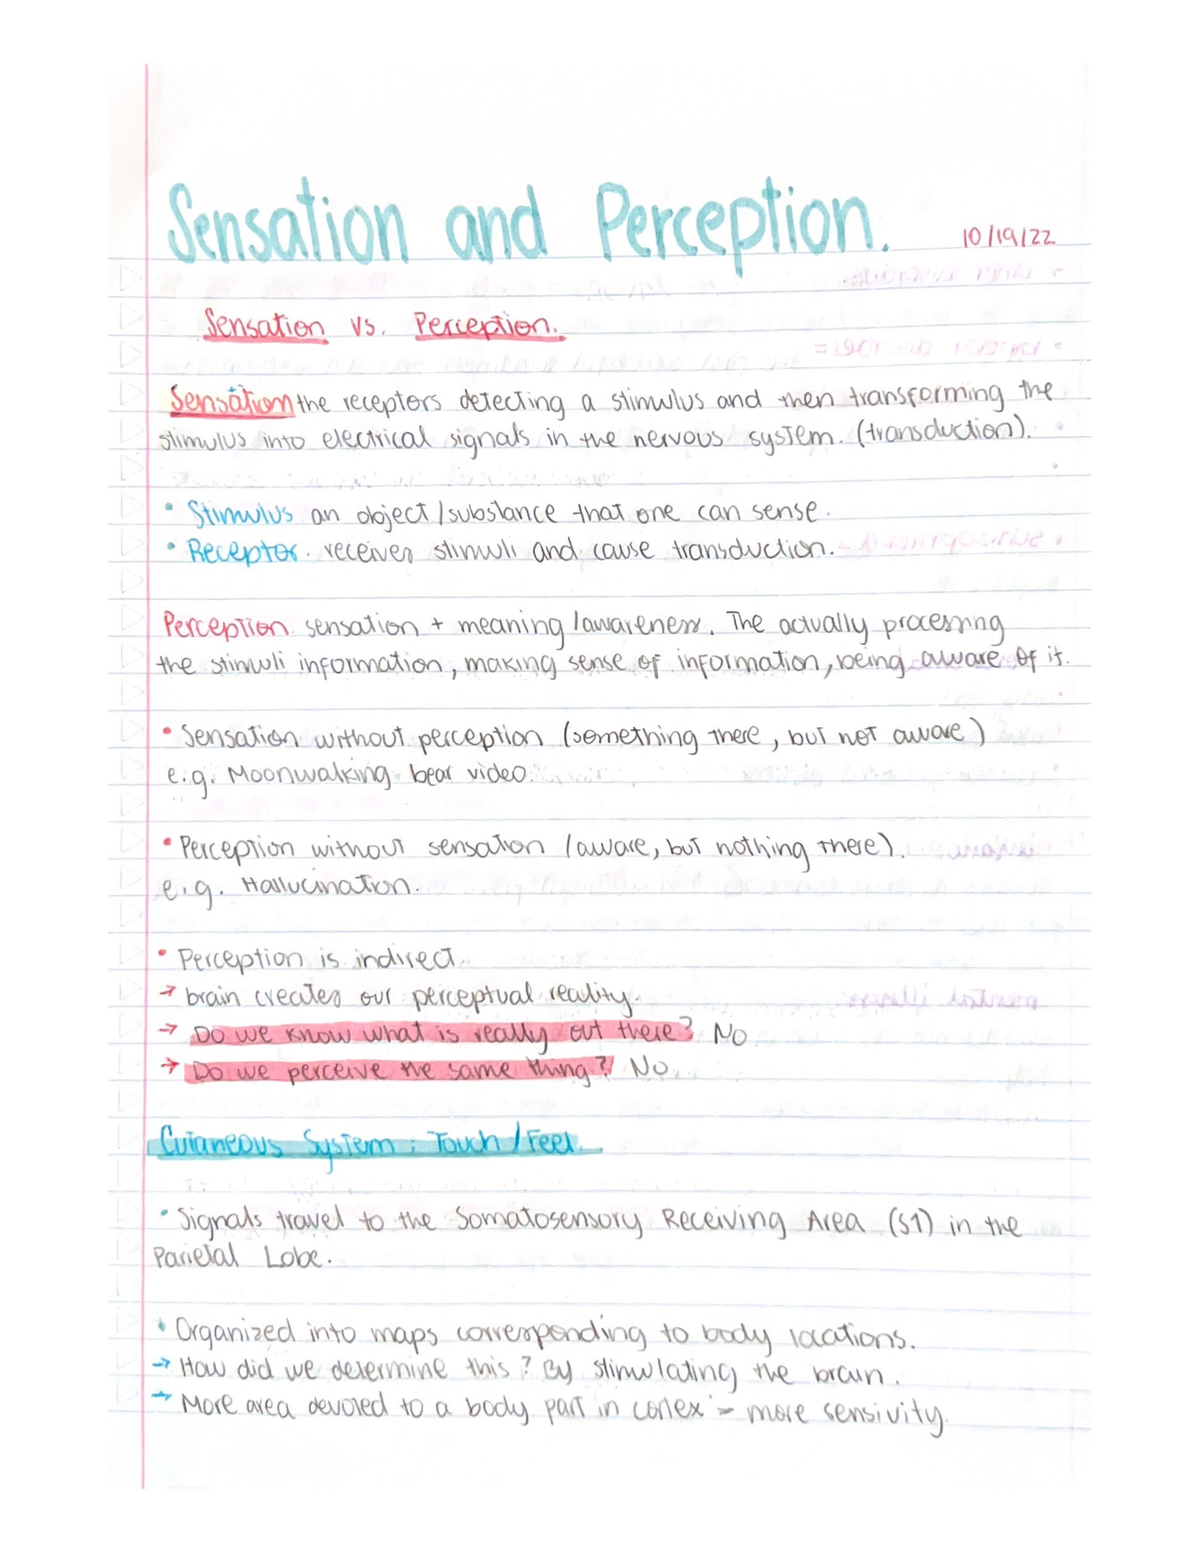 Sensation and Perception.
10/19/22
Sensation vs. Perception.
Sensation the receptors detecting a stimulus and then transforming the
stimulus into electrical signals in the nervous system. (transduction).
• Stimulus an object/substance that one can sense.
• Receptor. receives stimuli and cause transduction.
Perception. sensation + meaning/awareness. The actually processing
the stimuli information, making sense of information, being aware of it.
• Sensation without perception (something there, but not aware)
e.g. Moonwalking bear video.
• Perception without sensation (aware, but nothing there).
e.g. Hallucination.
• Perception is indirect.
→ brain creates our perceptual reality.
→ Do we know what is really out there? No
→ Do we perceive the same thing? No
Cutaneous System: Touch/Feel
• Signals travel to the Somatosensory Receiving Area (S1) in the
Parietal Lobe.
• Organized into maps corresponding to body locations.
→ How did we determine this? By stimulating the brain.
→ More area devoted to a body part in cortex = more sensivity.